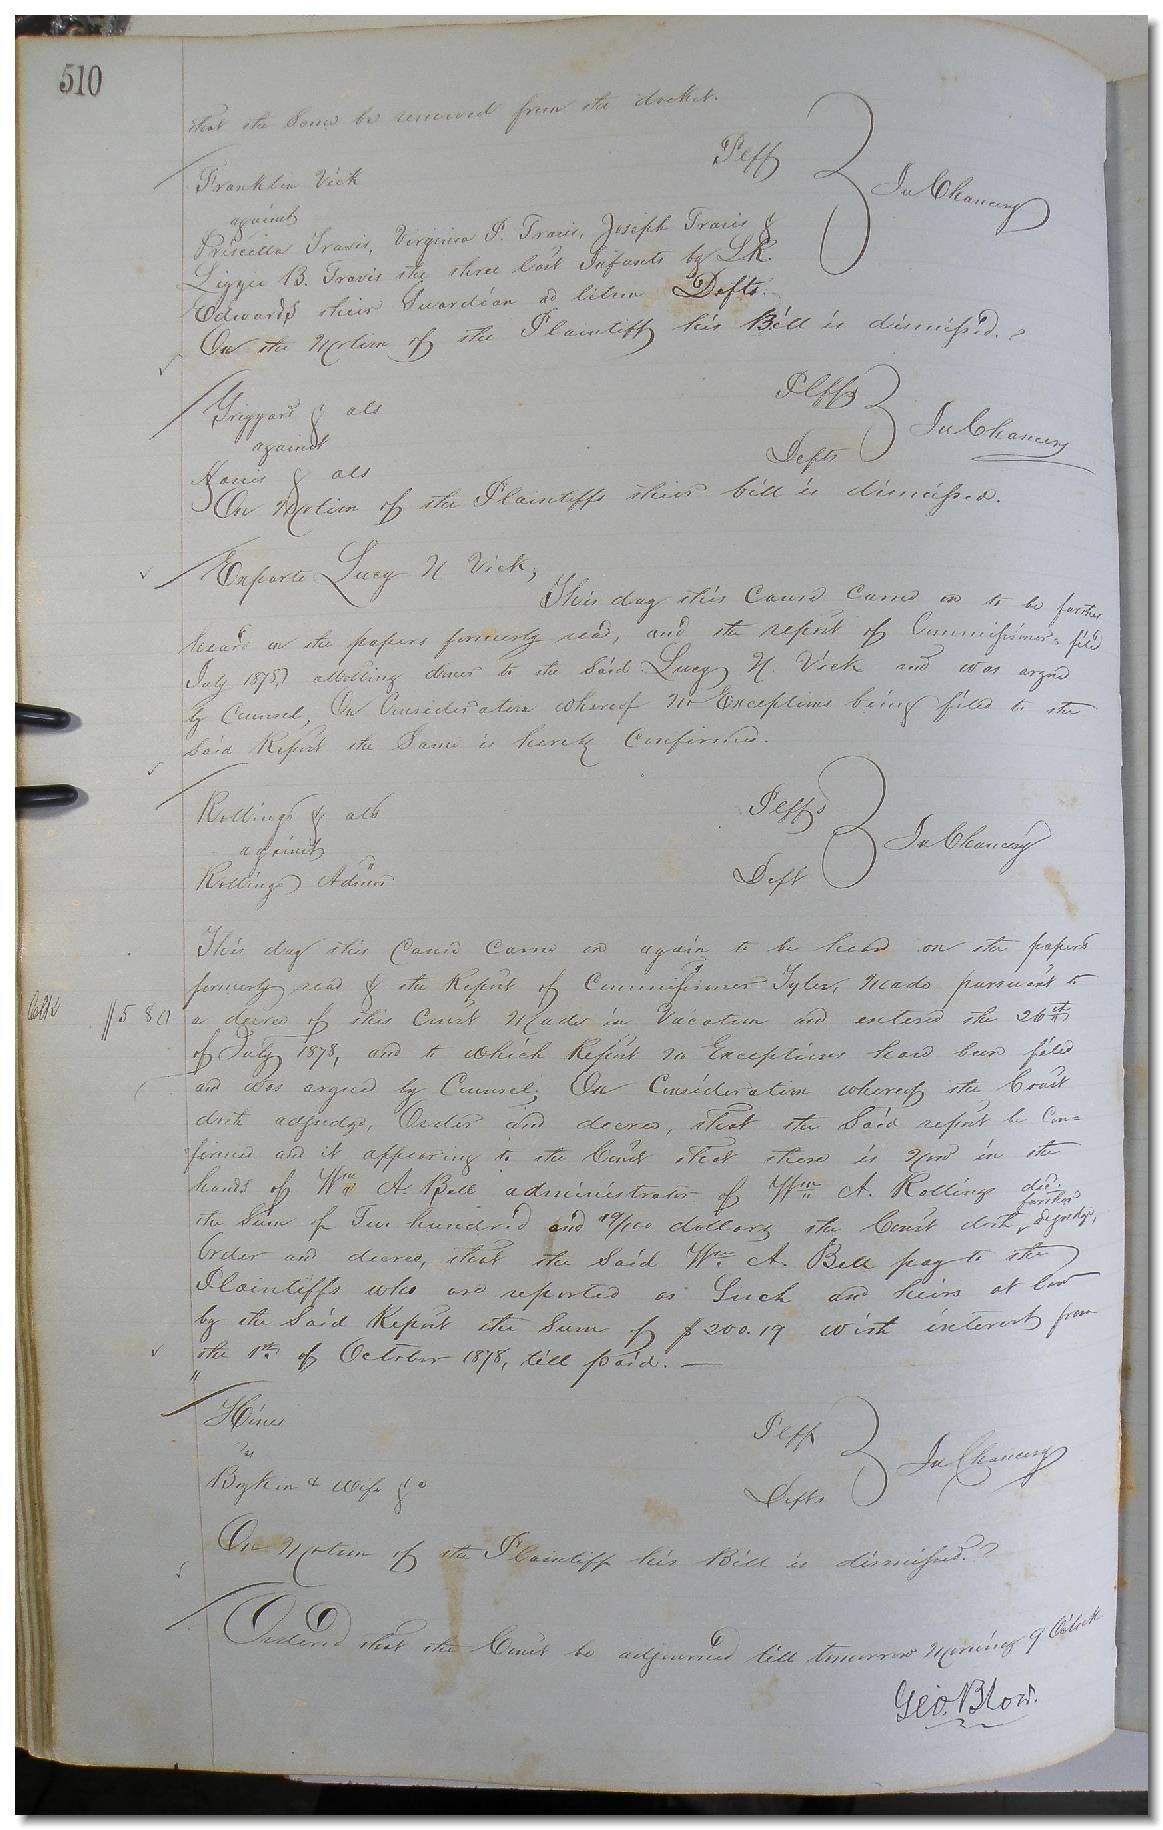 510
that the Same be removed from the docket.
Franklin Vick Plff
against In Chancery
Priscilla Travis, Virginia P. Travis, Joseph Travis &
Lizzie B. Travis the three last Infants by L.R.
Edwards their Guardian ad litem Defts.
On the Motion of the Plaintiff his Bill is dismissed.
Griggard & als Plffs
against In Chancery
Harris & als Defts
On Motion of the Plaintiffs their bill is dismissed.
Exparte Lucy N Vick,
This day this Cause Came on to be further
heard on the papers formerly read, and the report of Commissioner filed
July 1878, allotting dower to the Said Lucy N. Vick and was argued
by Counsel, On Consideration whereof no Exceptions being filed to the
Said Report the Same is hereby Confirmed.
Rollings & als Plffs
against In Chancery
Rollings Admor Deft
This day this Cause Came on again to be heard on the papers
formerly read & the Report of Commissioner Tyler, made pursuant to
$5 80
a decree of this Court Made in Vacation and entered the 26th
of July 1878, and to which Report no Exceptions have been filed
and was argued by Counsel; On Consideration whereof the Court
doth adjudge, Order and decree, that the Said report be Con
firmed and it appearing to the Court that there is now in the
hands of Wm A. Bell administrator of Wm A. Rollings dec.
the Sum of Two hundred and 19/100 dollars the Court doth further adjudge,
Order and decree, that the Said Wm A. Bell pay to the
Plaintiffs who are reported as Such and heirs at law
by the Said Report the Sum of $200.19 with interest from
the 1st of October 1878, till paid. —
Hines Plff
vs In Chancery
Boykin & Wife &c Defts
On Motion of the Plaintiff his Bill is dismissed.
Ordered that the Court be adjourned till tomorrow Morning 9 Oclock
Geo. Blow.